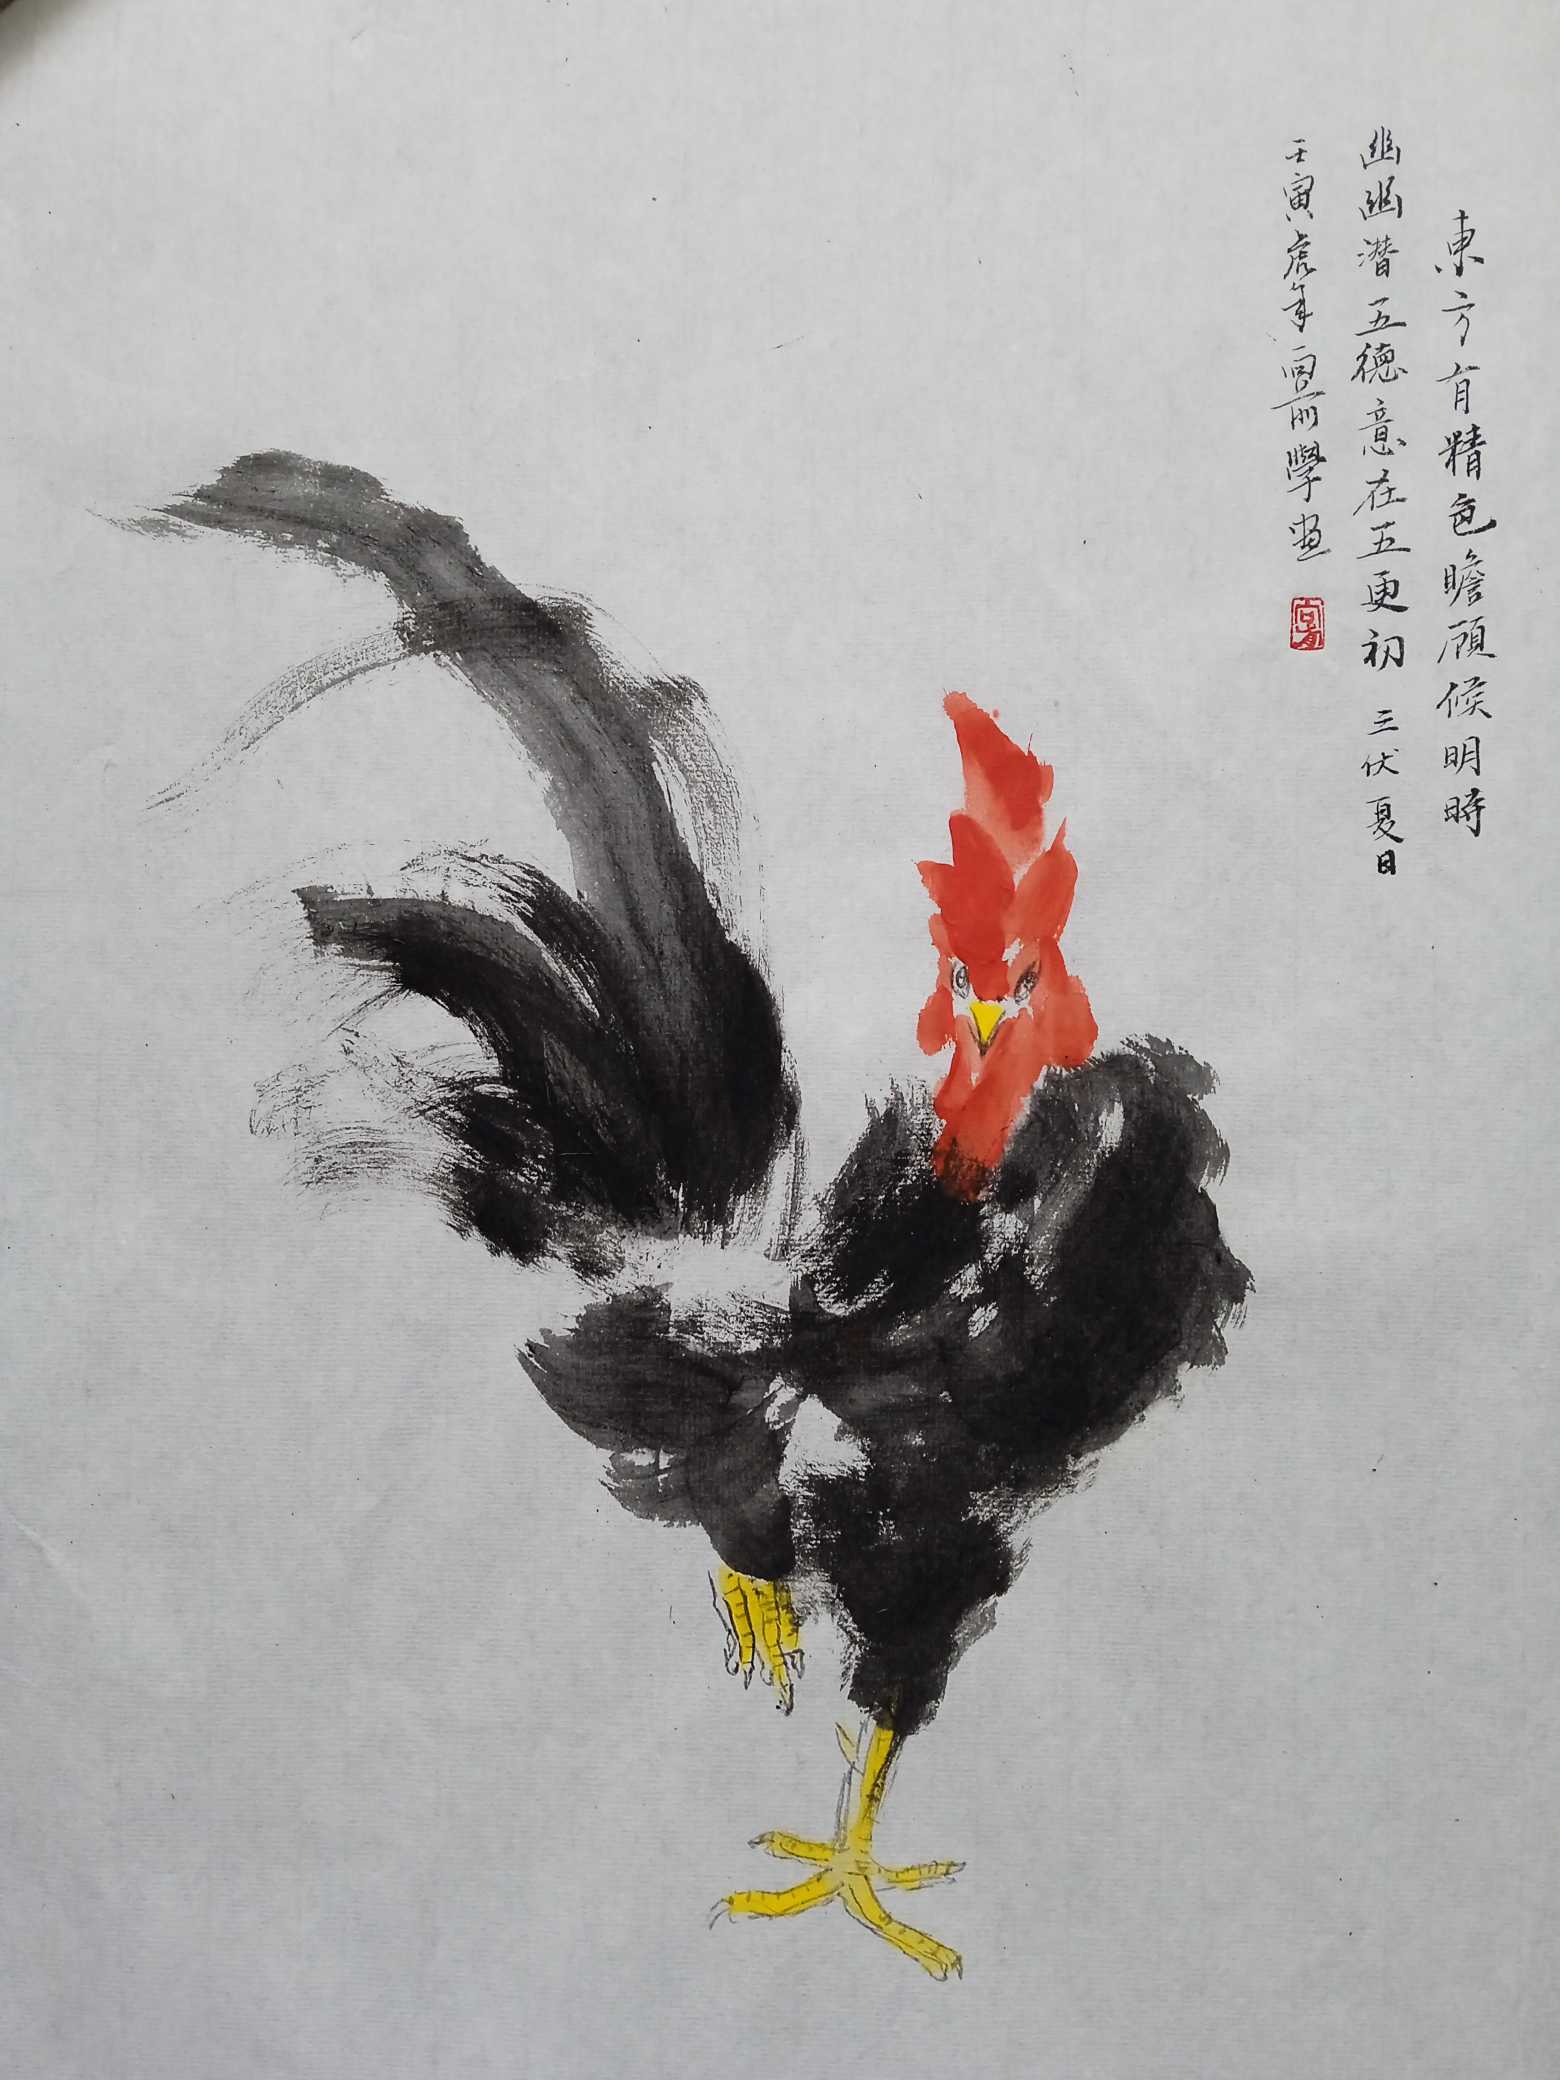 東方有精色瞻顧候明時
幽幽潜五德意在五更初 三伏夏日
壬寅虎年向前學画